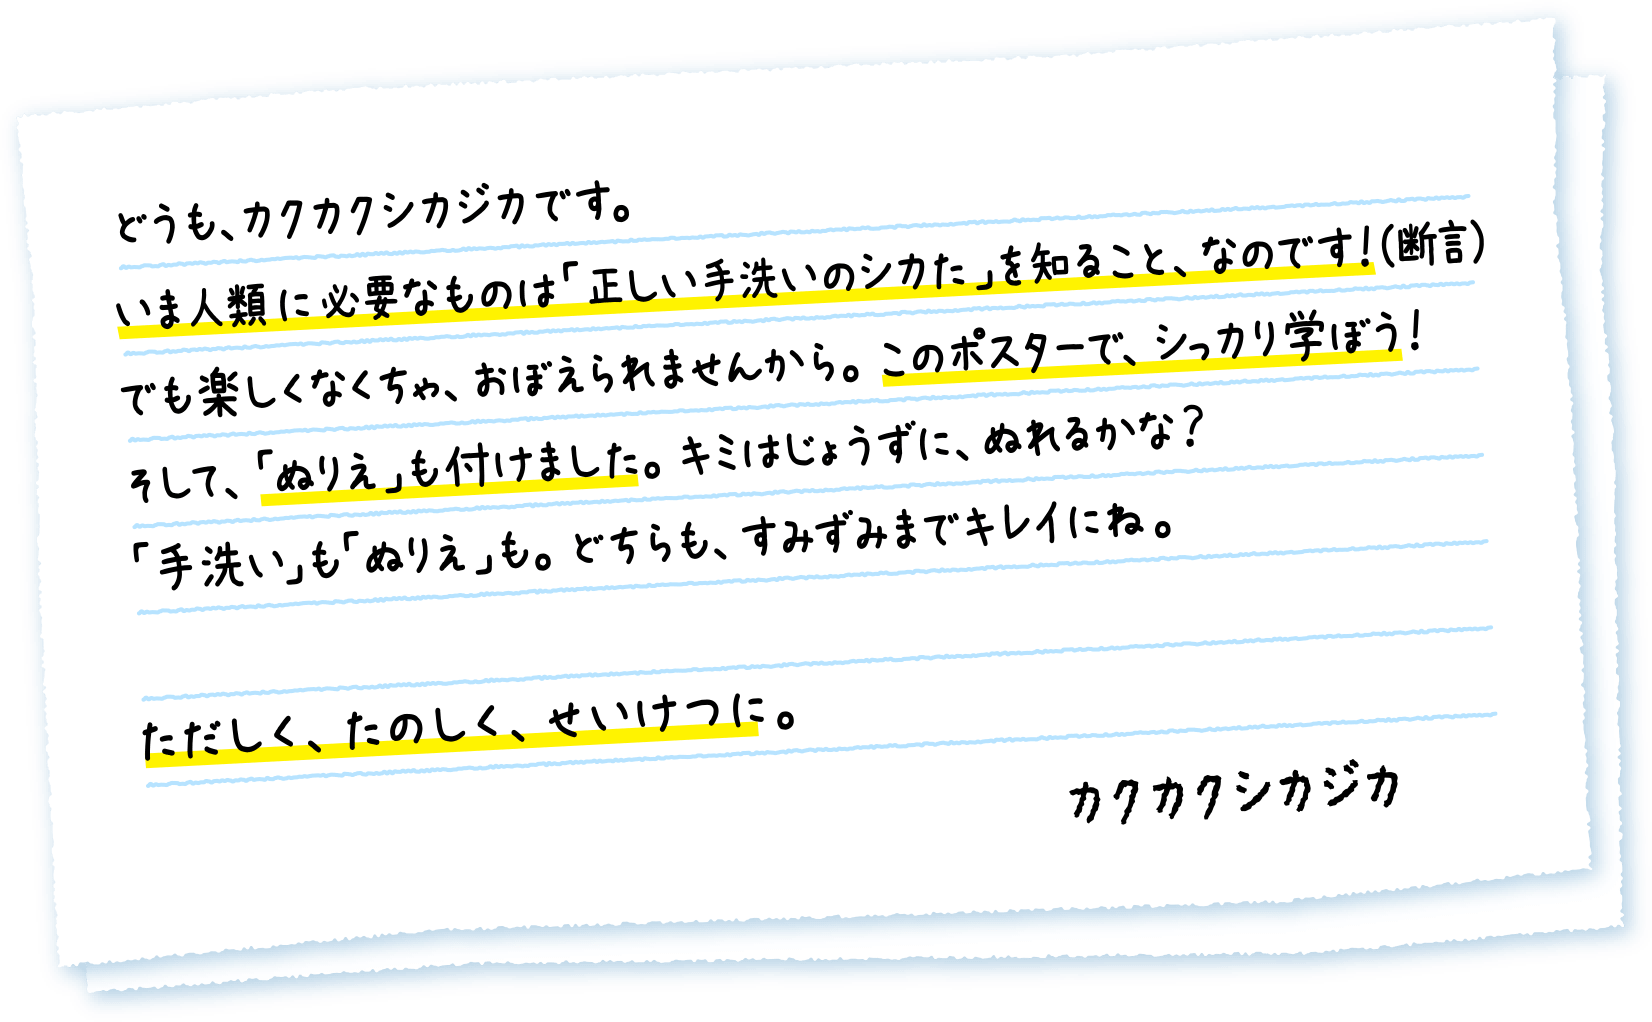 どうも、カクカクシカジカです。
いま人類に必要なものは「正しい手洗いのシカた」を知ること、なのです！(断言)
でも楽しくなくちゃ、おぼえられませんから。このポスターで、シっカリ学ぼう！
そして、「ぬりえ」も付けました。キミはじょうずに、ぬれるかな？
「手洗い」も「ぬりえ」も。どちらも、すみずみまでキレイにね。
ただしく、たのしく、せいけつに。
カクカクシカジカ